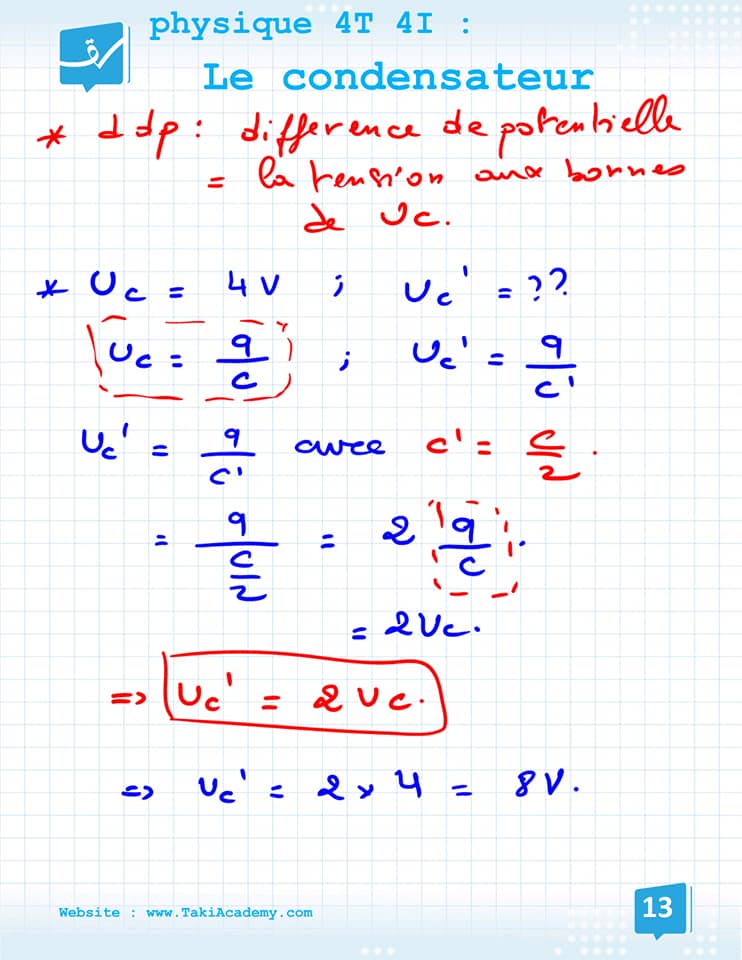 physique 4T 4I :
Le condensateur
* ddp : difference de potentielle
= la tension aux bornes
de Uc.
* Uc = 4V ; Uc' = ??
Uc = q/c ; Uc' = q/c'
Uc' = q/c' avec c' = c/2.
= q/(c/2) = 2 q/c.
= 2Uc.
=> Uc' = 2Uc.
=> Uc' = 2 x 4 = 8V.
Website : www.TakiAcademy.com
13